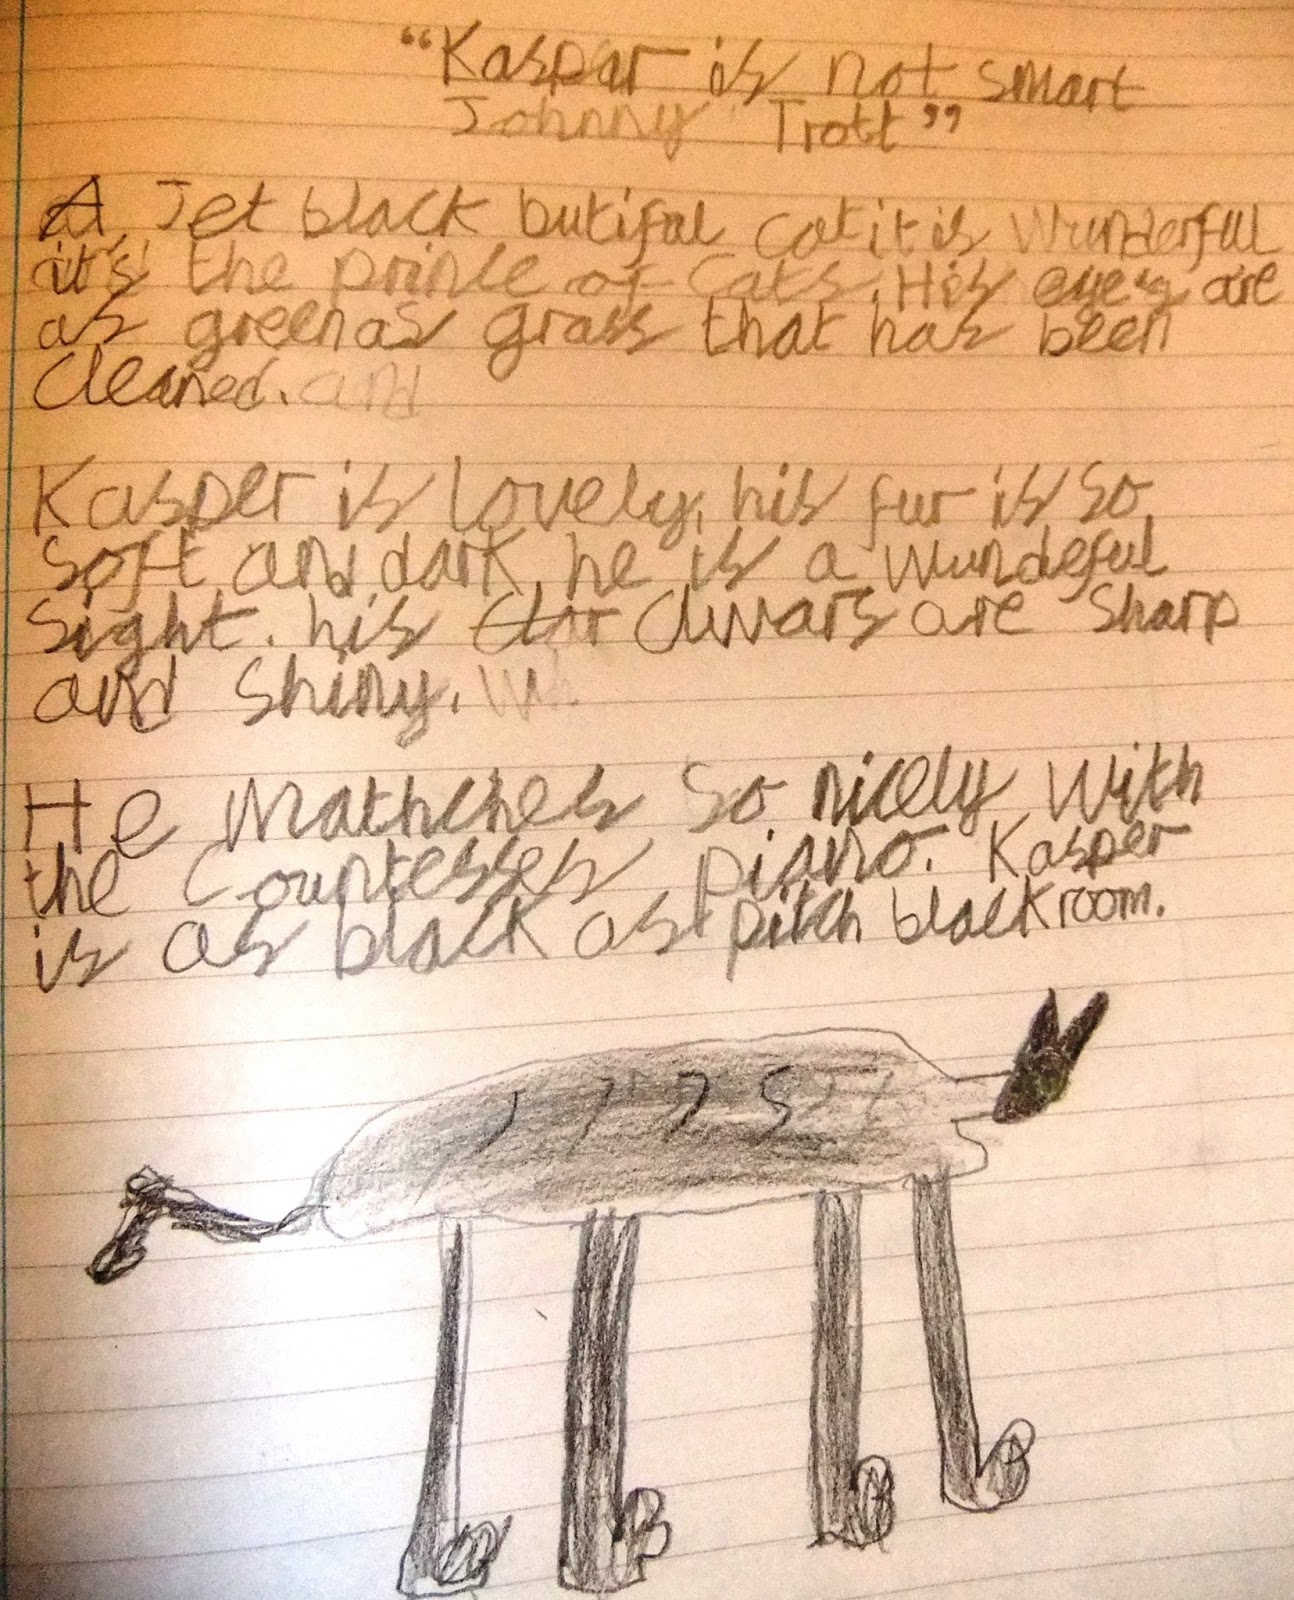 "Kaspar is not smart
Johnny Trott"
A Jet black butiful cat it is Wunderful
it's the prince of cats. His eyes are
as green as grass that has been
cleaned. and
Kasper is lovely, his fur is so
soft and dark, he is a wundeful
sight. his Clwars are sharp
and shiny.
He Mathches so nicely with
the Countesses piano. Kasper
is as black as pitch black room.